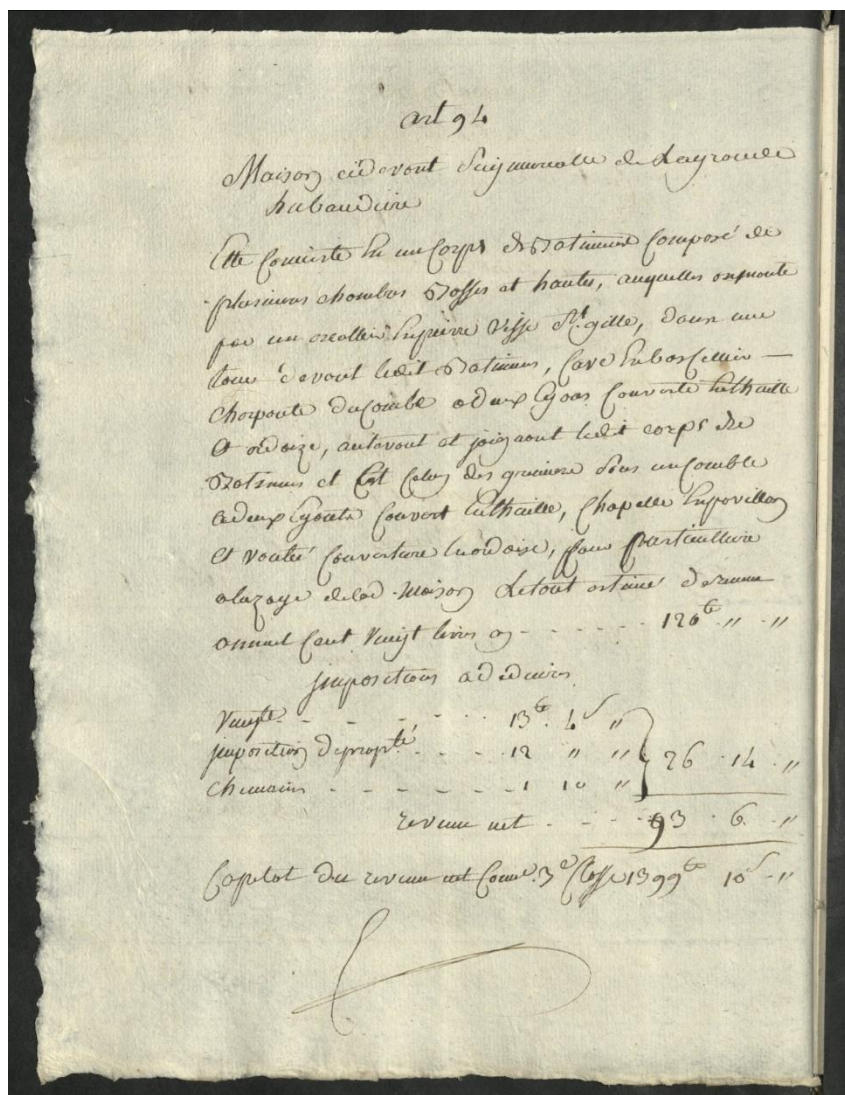 art 94
Maison cidevant Seigneurialle de Lagrande
habaudiere
Elle Consiste En un Corps de Batiment Composé de
plusieurs chambres Basses et hautes, auquelles onmonte
par un escallier Enpierre Visse St. gille, dans une
tour devant ledit Batiment, Cave
Charpente du Comble adeux Egous Couverte Enthuille
Et ardoize, audevant et joignant ledit corps de
Batiment et Est Celuy des greniers Sous un Comble
adeux Egouts Couvert Enthuille, Chapelle Enpavillon
Et voutée Couverture En ardoise, four particulliere
aluzage delad. Maison Letout estimé derevenu
annuel Cent Vingt livres cy - - - - - 120 tt " "
jmpositions a déduire
Vingte. - - - - - 13 tt 4 s "
jmposition depropté - - - - 12 " " 26 . 14 . "
Chemains - - - - - 1 10 "
revenu net - - - - 93 . 6 . "
Capital du revenu net Come. 3e Classe 1399 tt 10 s "